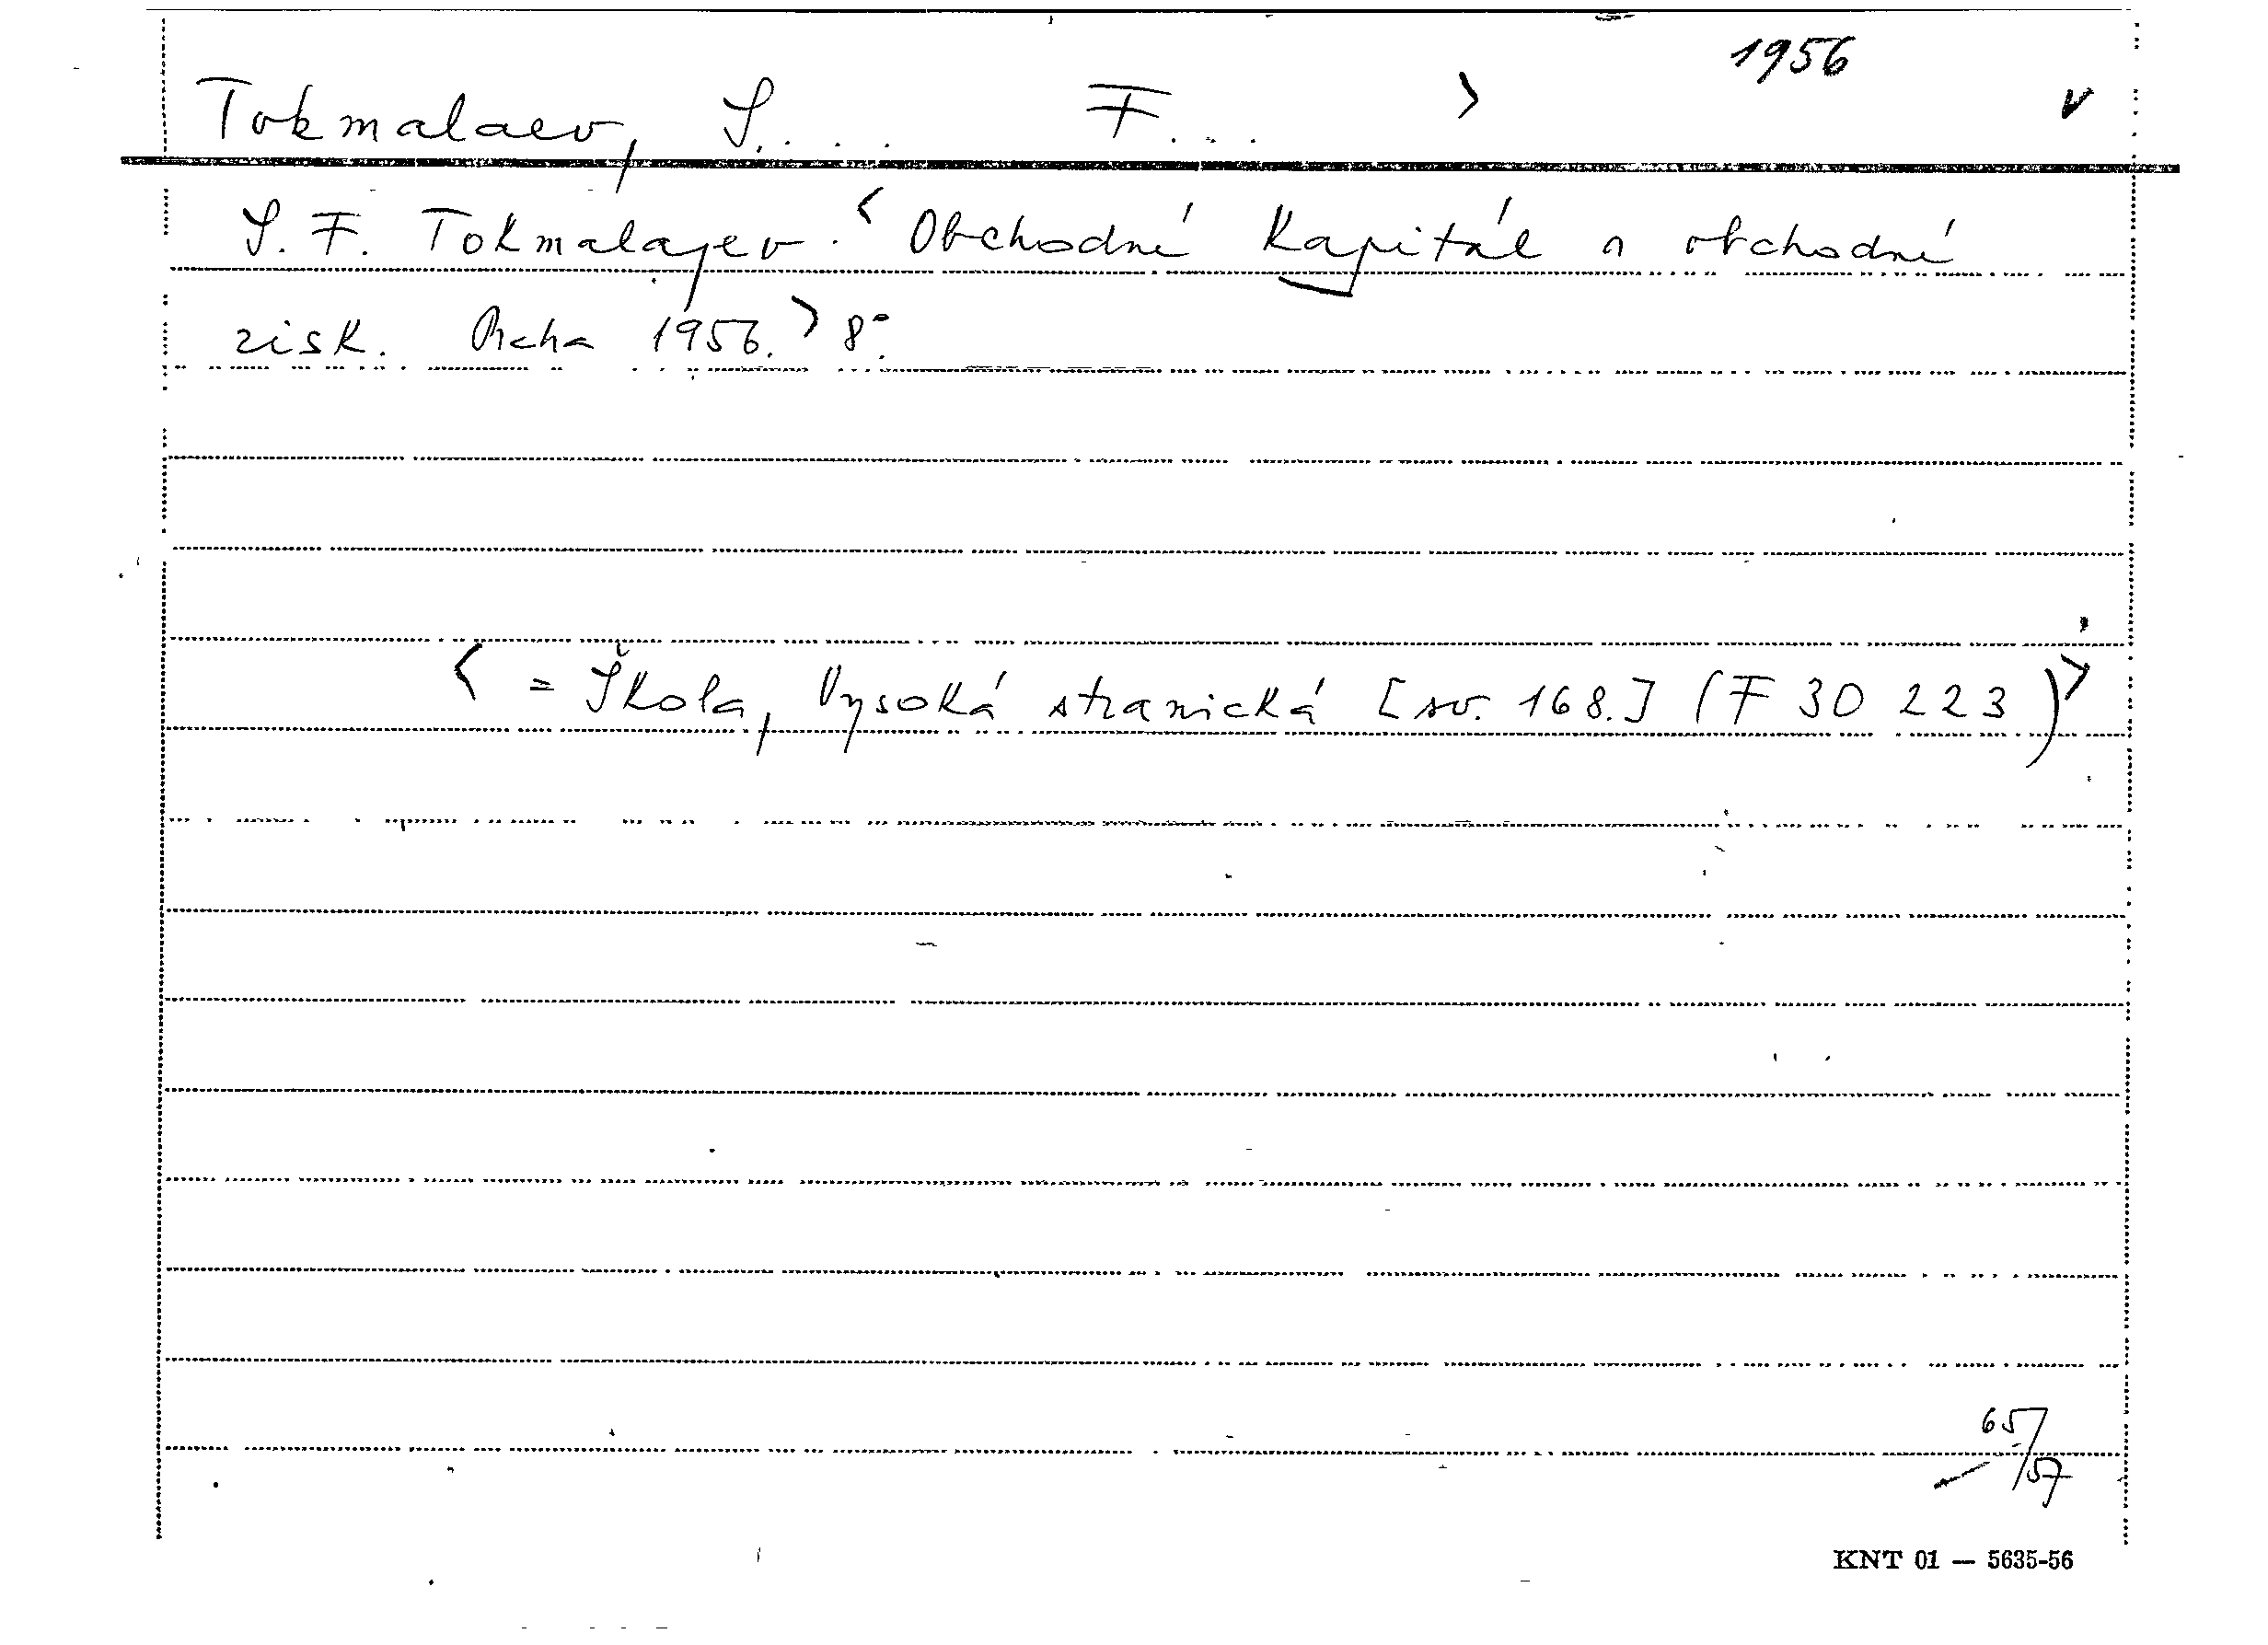 1956
Tokmalaev, S.... F... > v
S. F. Tokmalajev. < Obchodní kapitál a obchodní
zisk. Praha 1956. > 8°.
< = Škola, Vysoká stranická [sv. 168.] (F 30 223) >
65/57
KNT 01 — 5635-56